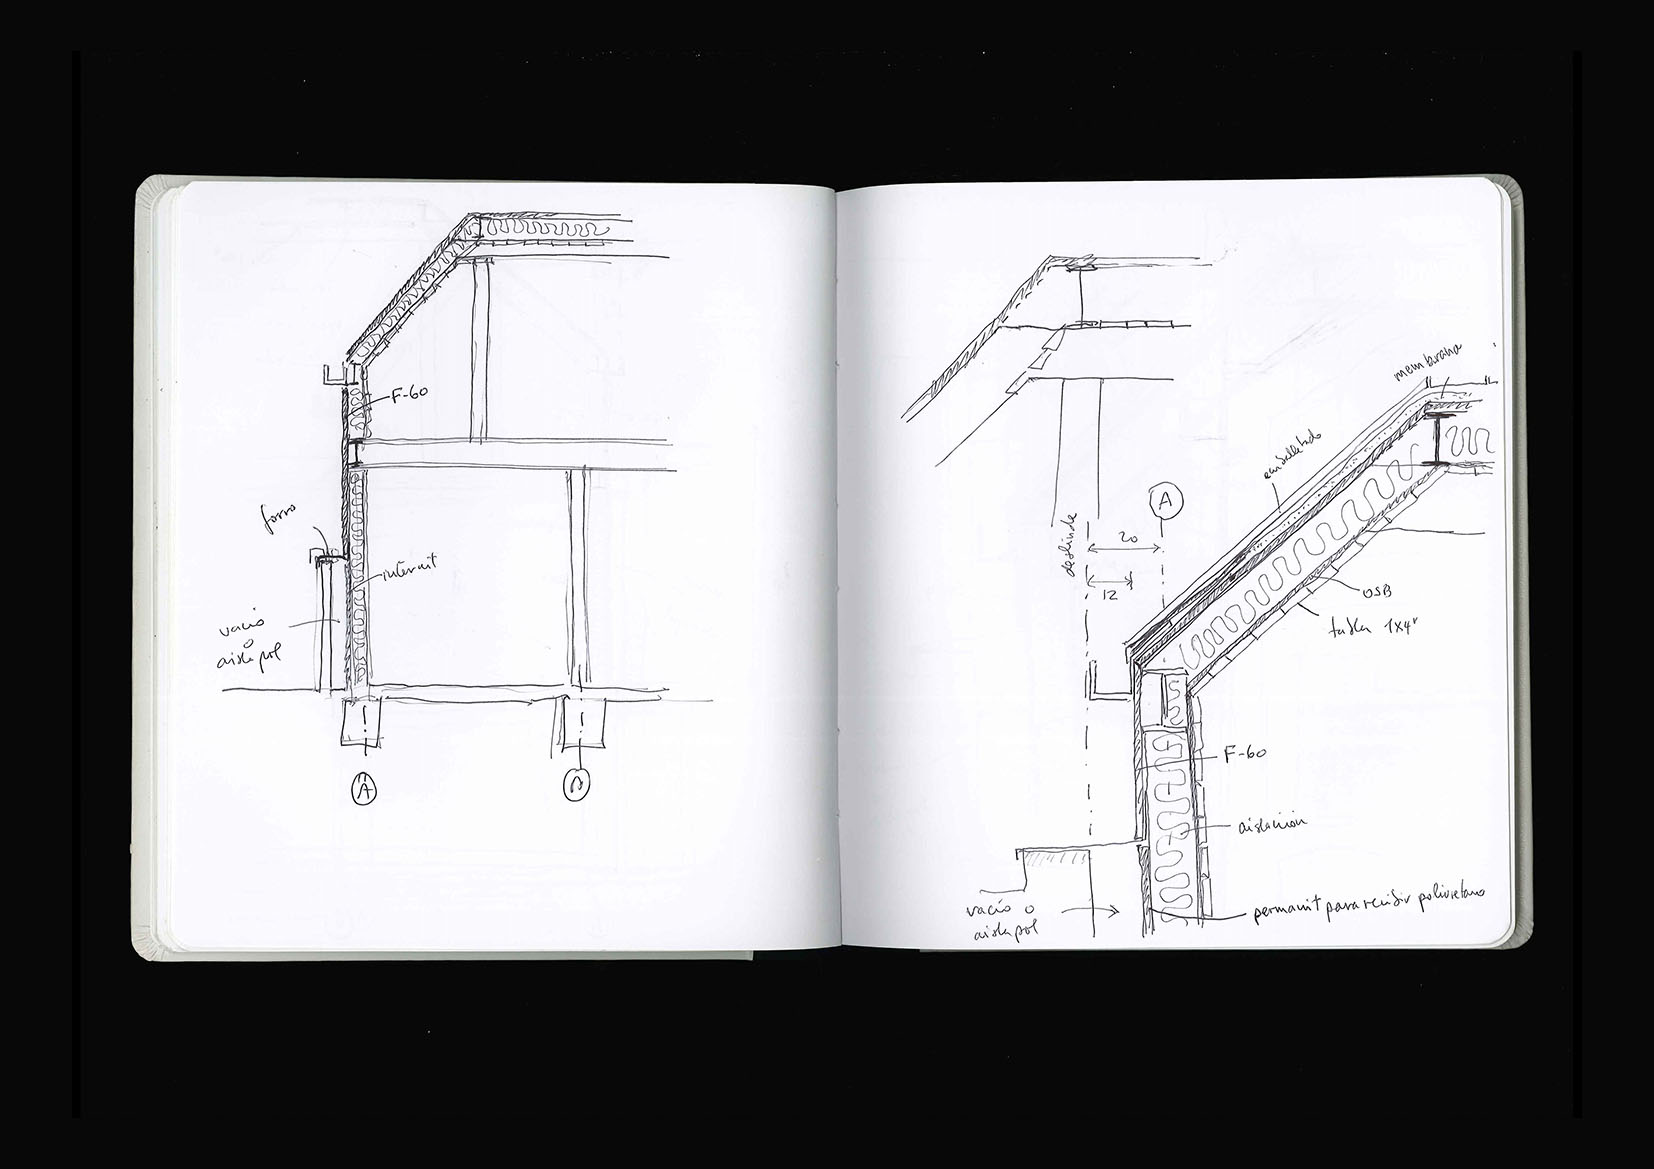 F-60
forro
internit
vacío
o
aislapol
A
membrana
A
deslinde
20
12
OSB
tabla 1x4"
F-60
aislación
vacío o
aislapol
permanit para recibir poliuretano